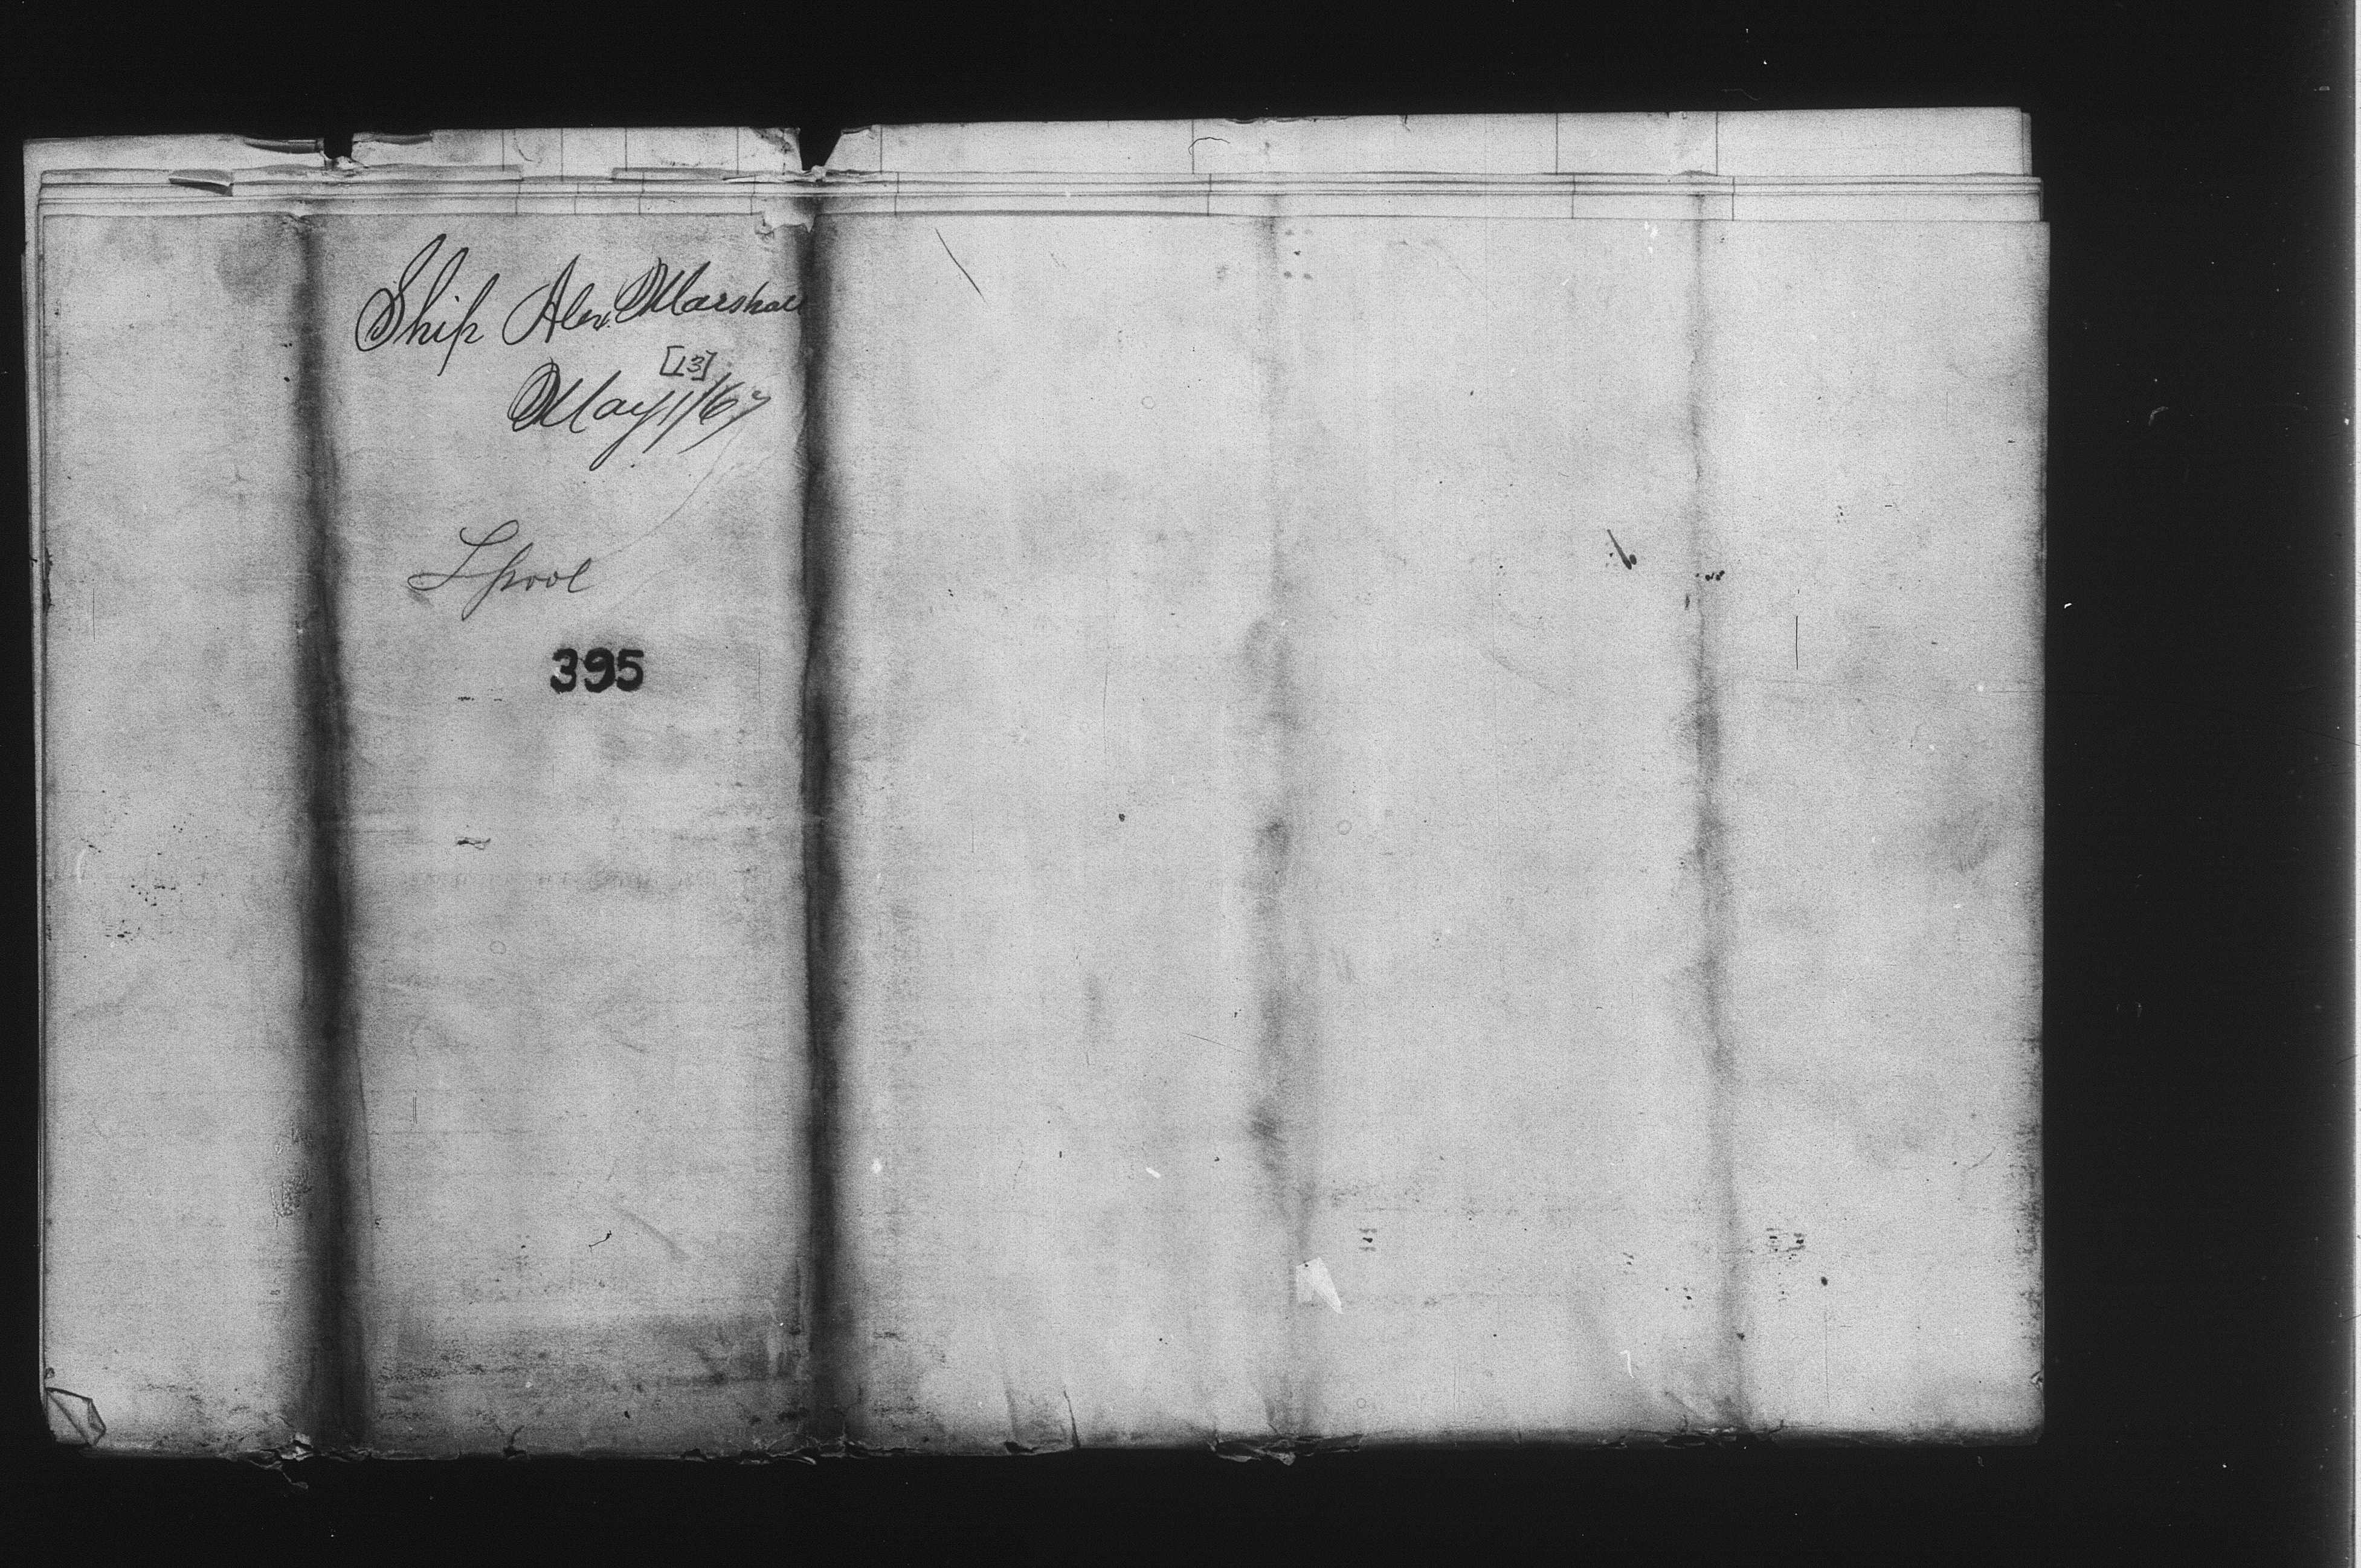 Ship Alex. Marshall
[13]
May 11/67
Lpool
395